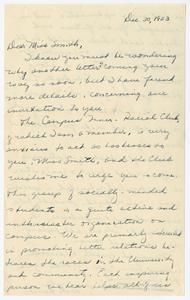 Dec. 30, 1953
Dear Miss Smith,
I know you must be wondering
why another letter coming your
way so soon; but I have found
more details concerning our
invitation to you.
The Campus Inter-Racial Club,
of which I am a member, is very
anxious to act as hostesses to
you, Miss Smith, and the Club
wishes me to urge you to come.
This group of socially-minded
students is a quite active and
enthusiastic organization on
Campus. We are primarily interested
in promoting better relations be-
tween the races in the University
and community. Each inspiring
person we hear helps all of us